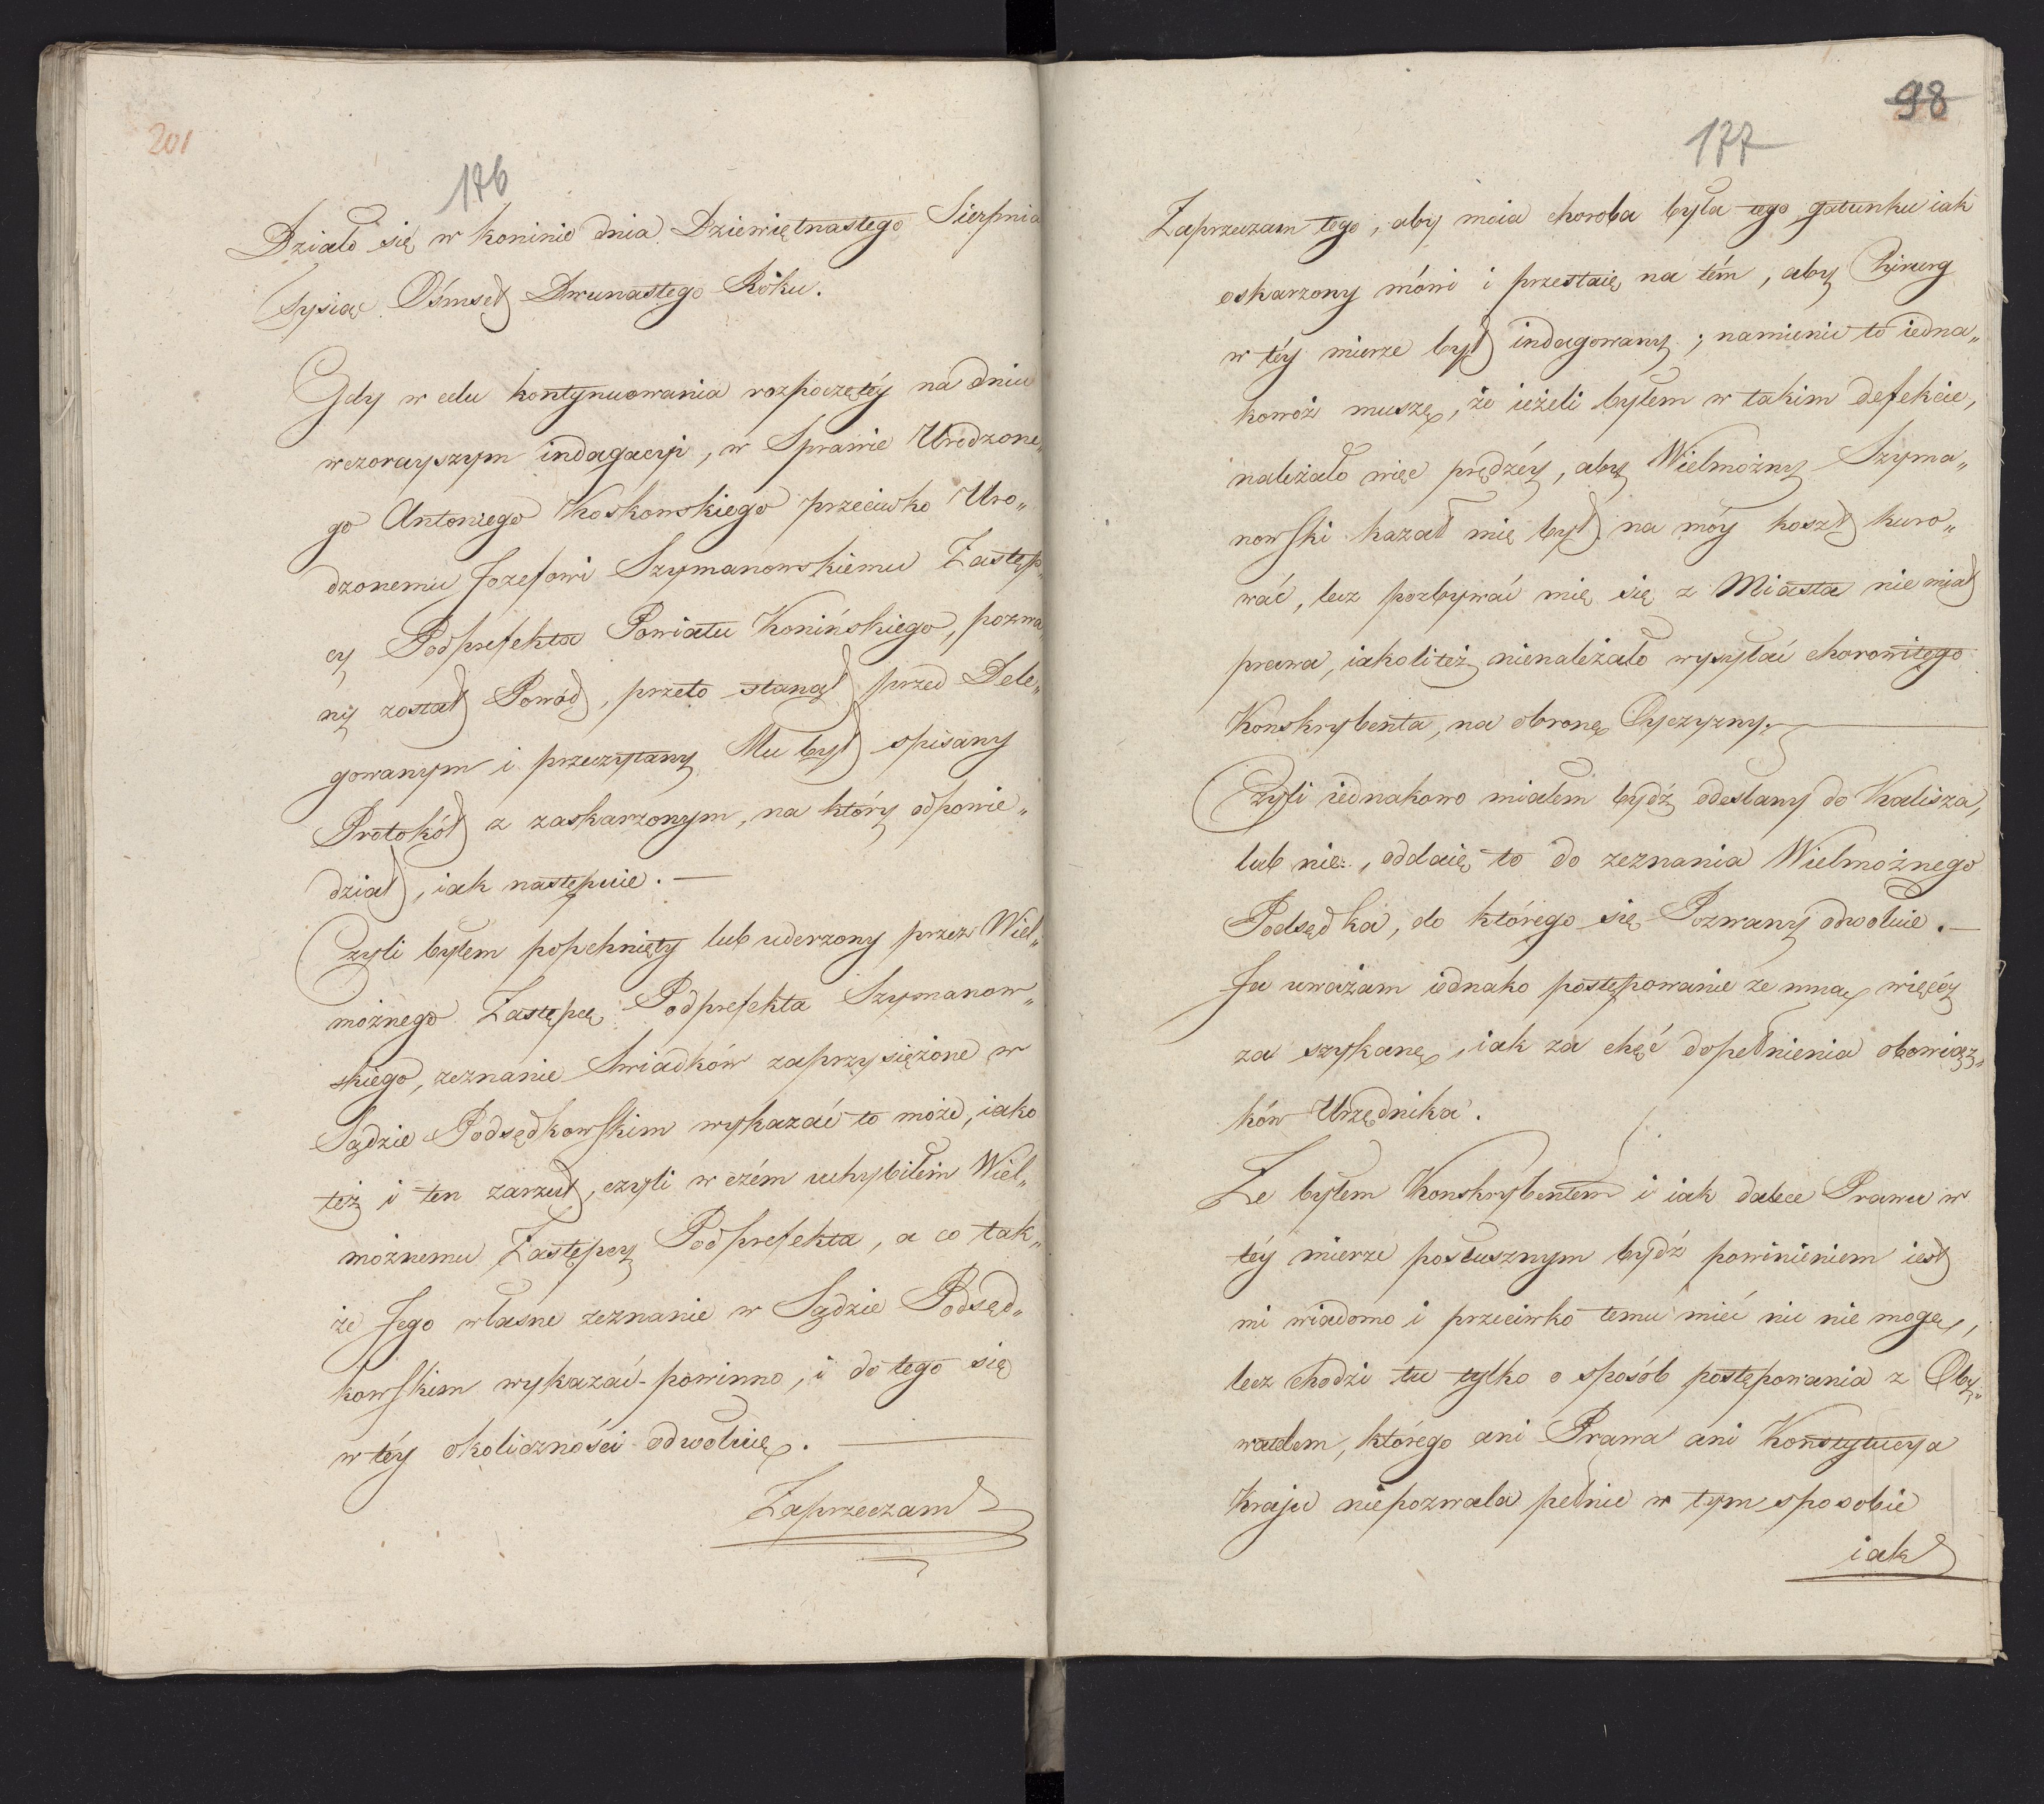 201
176
Działo się w Koninie dnia Dziewiętnastego Sierpnia
Tysiąc Ośmset Dwunastego Roku.
Gdy w celu kontynuowania rozpoczętéy na dniu
wczorayszym indagacyi, w Sprawie Urodzone„
go Antoniego Koskowskiego przeciwko Uro„
dzonemu Jozefowi Szymanowskiemu Zastęp„
cy Podprefekta Powiatu Konińskiego, pozwa„
ny został Powód, przeto stanął przed Dele„
gowanym i przeczytany Mu był spisany
Protokół z zaskarzonym, na który odpowie„
dział, iak następuie. —
Czyli byłem popchnięty lub uderzony przez Wiel„
możnego Zastępcę Podprefekta Szymanow„
skiego, zeznanie Swiadków zaprzysiężone w
Sądzie Podsędkowskim wykazać to może, iako
też i ten zarzut, czyli w czém uchybiłem Wiel„
możnemu Zastępcy Podprefekta, a co tak„
że Jego własne zeznanie w Sądzie Podsęd„
kowskim wykazać powinno, i do tego się
w téy okoliczności odwołuię. —
Zaprzeczam
98
177
Zaprzeczam tego, aby moia choroba była tego gatunku iak
oskarzony mówi i przestaię na tém, aby Chirurg
w téy mierze był indagowany; namienić to iedna„
kowoż muszę, że ieżeli byłem w takim defekcie,
należało więc prędzéy, aby Wielmożny Szyma„
nowski kazał mię był na móy koszt kuro„
wać, lecz pozbywać mię się z Miasta nie miał
prawa, iakoli też nienależało wysyłać chorowitego
Konskrybenta, na obronę Oyczyzny. —
Czyli iednakowo miałem bydź odesłany do Kalisza,
lub nie, oddaię to do zeznania Wielmożnego
Podsędka, do którego się Pozwany odwołuie. —
Ja uważam iednako postępowanie ze mną więcéy
za szykanę, iak za chęć dopełnienia obowiąz„
ków Urzędnika.
Że byłem Konskrybentem i iak dalece Prawu w
téy mierze posłusznym bydź powinieniem iest
mi wiadomo i przeciwko temu mieć nic nie mogę,
lecz chodzi tu tylko o sposób postępowania z Oby„
watelem, którego ani Prawa ani Konstytucya
Kraju niepozwala pełnić w tym sposobie
iak